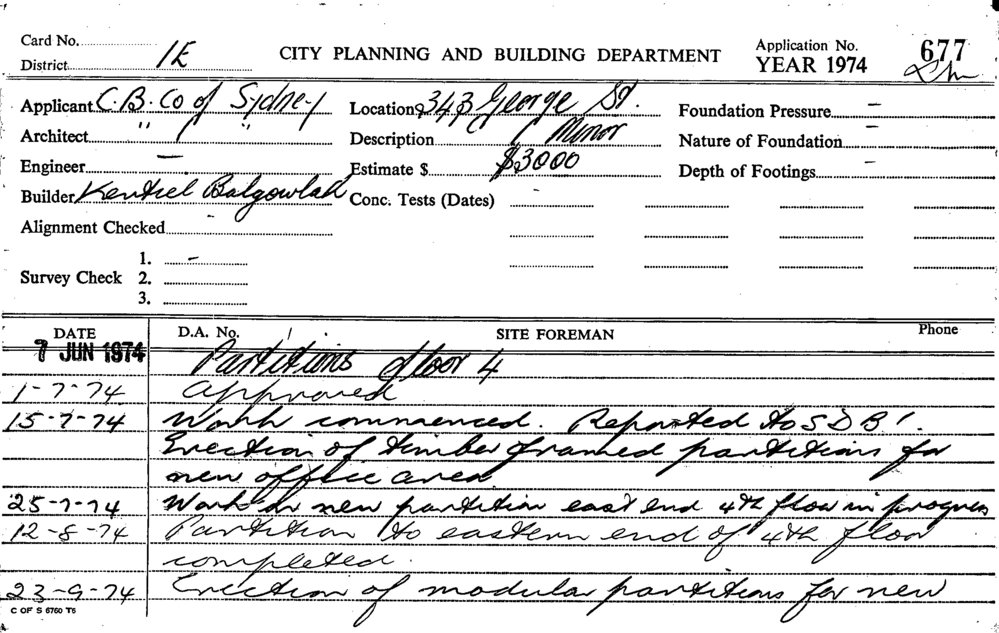 Card No.
District 1E
CITY PLANNING AND BUILDING DEPARTMENT
Application No. 677
YEAR 1974
Applicant C.B. Co of Sydney
Location 343 George St.
Foundation Pressure –
Architect " " "
Description Minor
Nature of Foundation –
Engineer –
Estimate $ $3000
Depth of Footings –
Builder Balgowlah
Conc. Tests (Dates)
Alignment Checked
Survey Check
1. –
2.
3.
DATE D.A. No. SITE FOREMAN Phone
7 JUN 1974 Partitions floor 4
1-7-74 Approved
15-7-74 Work commenced. Reported to SDB'.
Erection of timber framed partitions for
new office area.
25-7-74 Work on new partition east end 4th floor in progress
12-8-74 Partition to eastern end of 4th floor
completed.
23-9-74 Erection of modular partitions for new
C OF S 6760 T5